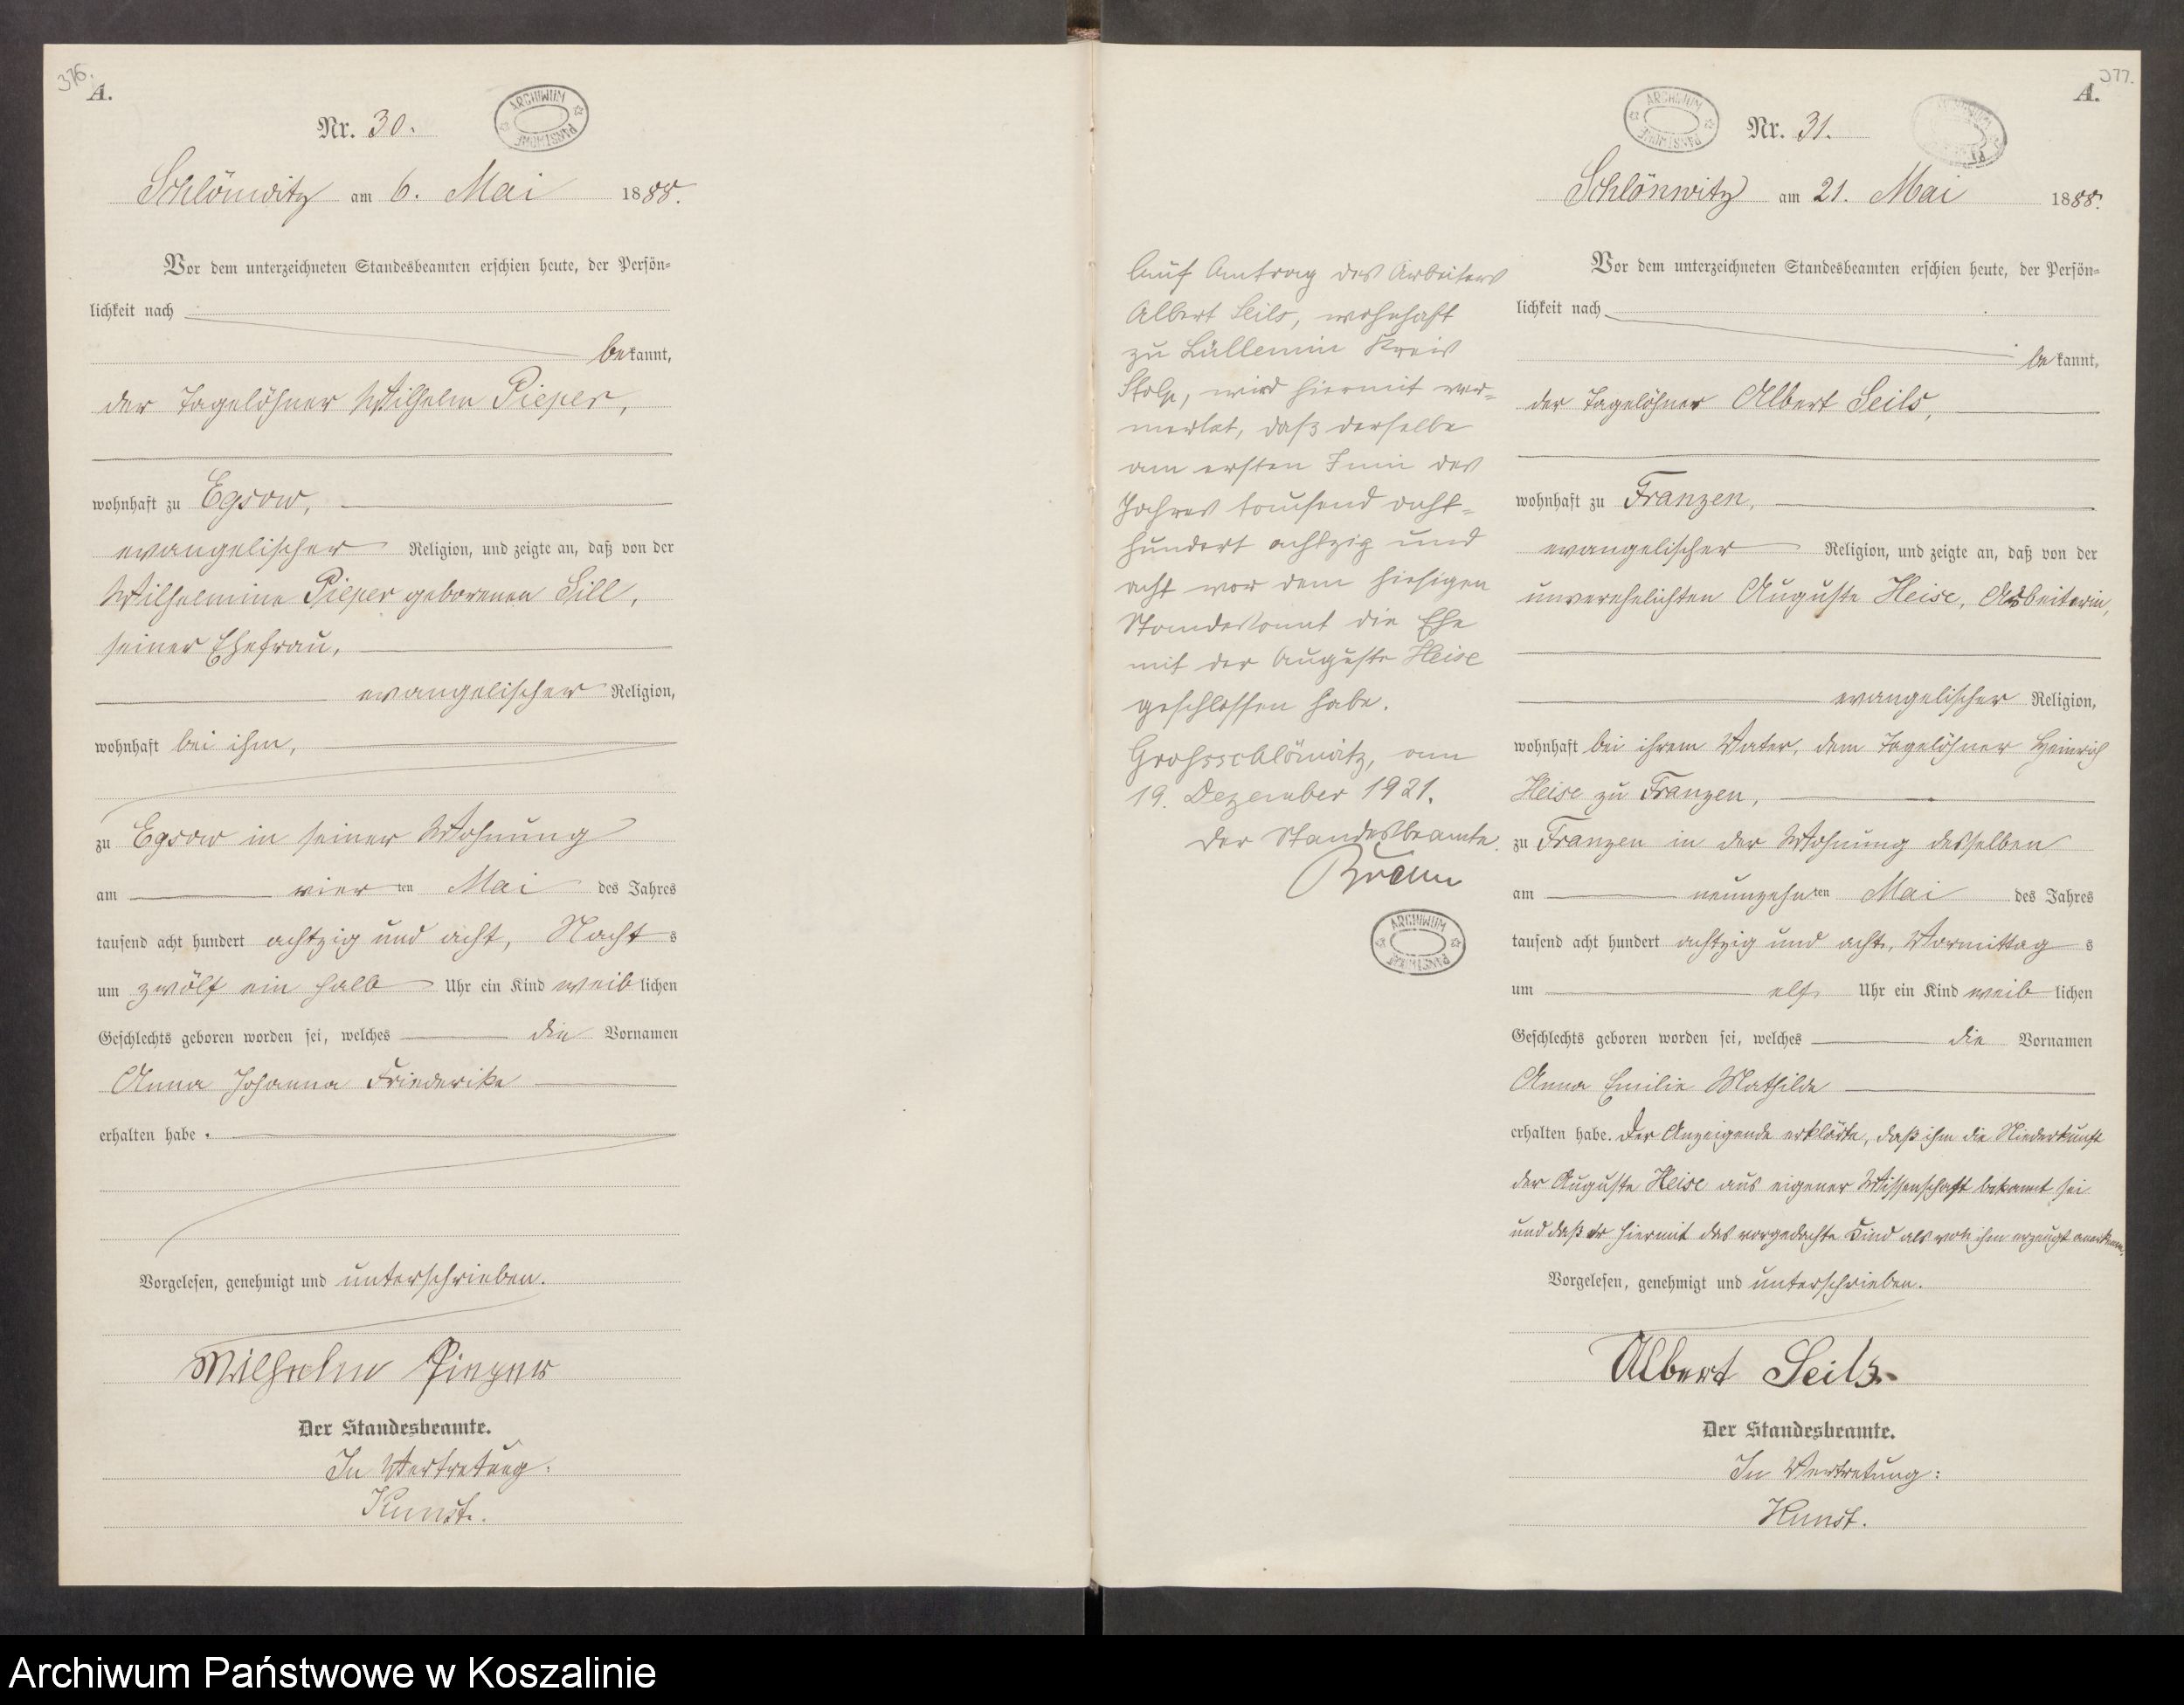 376.
A.
Nr. 30.
ARCHIWUM PAŃSTWOWE
Schlönwitz am 6. Mai 1888.
Vor dem unterzeichneten Standesbeamten erschien heute, der Persön-
lichkeit nach
bekannt,
der Tagelöhner Wilhelm Pieper,
wohnhaft zu Egsow,
evangelischer Religion, und zeigte an, daß von der
Wilhelmine Pieper geborenen Sill,
seiner Ehefrau,
evangelischer Religion,
wohnhaft bei ihm,
zu Egsow in seiner Wohnung
am vier ten Mai des Jahres
tausend acht hundert achtzig und acht, Nacht s
um zwölf ein halb Uhr ein Kind weib lichen
Geschlechts geboren worden sei, welches die Vornamen
Anna Johanna Friederike
erhalten habe.
Vorgelesen, genehmigt und unterschrieben.
Wilhelm Pieper
Der Standesbeamte.
In Vertretung:
Kunst.
Auf Antrag des Arbeiters
Albert Seils, wohnhaft
zu Lüllemin Kreis
Stolp, wird hiermit ver-
merkt, daß derselbe
am ersten Juni des
Jahres tausend acht-
hundert achtzig und
acht vor dem hiesigen
Standesamt die Ehe
mit der Auguste Heise
geschlossen habe.
Grossschlönwitz, am
19. Dezember 1921.
Der Standesbeamte.
ARCHIWUM PAŃSTWOWE
377.
A.
ARCHIWUM PAŃSTWOWE
Nr. 31.
Schlönwitz am 21. Mai 1888.
Vor dem unterzeichneten Standesbeamten erschien heute, der Persön-
lichkeit nach
be kannt,
der Tagelöhner Albert Seils,
wohnhaft zu Franzen,
evangelischer Religion, und zeigte an, daß von der
unverehelichten Auguste Heise, Arbeiterin,
evangelischer Religion,
wohnhaft bei ihrem Vater, dem Tagelöhner Heinrich
Heise zu Franzen,
zu Franzen in der Wohnung desselben
am neunzehn ten Mai des Jahres
tausend acht hundert achtzig und acht, Vormittag s
um elf Uhr ein Kind weib lichen
Geschlechts geboren worden sei, welches die Vornamen
Anna Emilie Mathilde
erhalten habe. Der Anzeigende erklärte, daß ihm die Niederkunft
der Auguste Heise aus eigener Wissenschaft bekannt sei
und daß er hiermit das vorgedachte Kind als von ihm erzeugt anerkenne.
Vorgelesen, genehmigt und unterschrieben.
Albert Seils.
Der Standesbeamte.
In Vertretung:
Kunst.
Archiwum Państwowe w Koszalinie